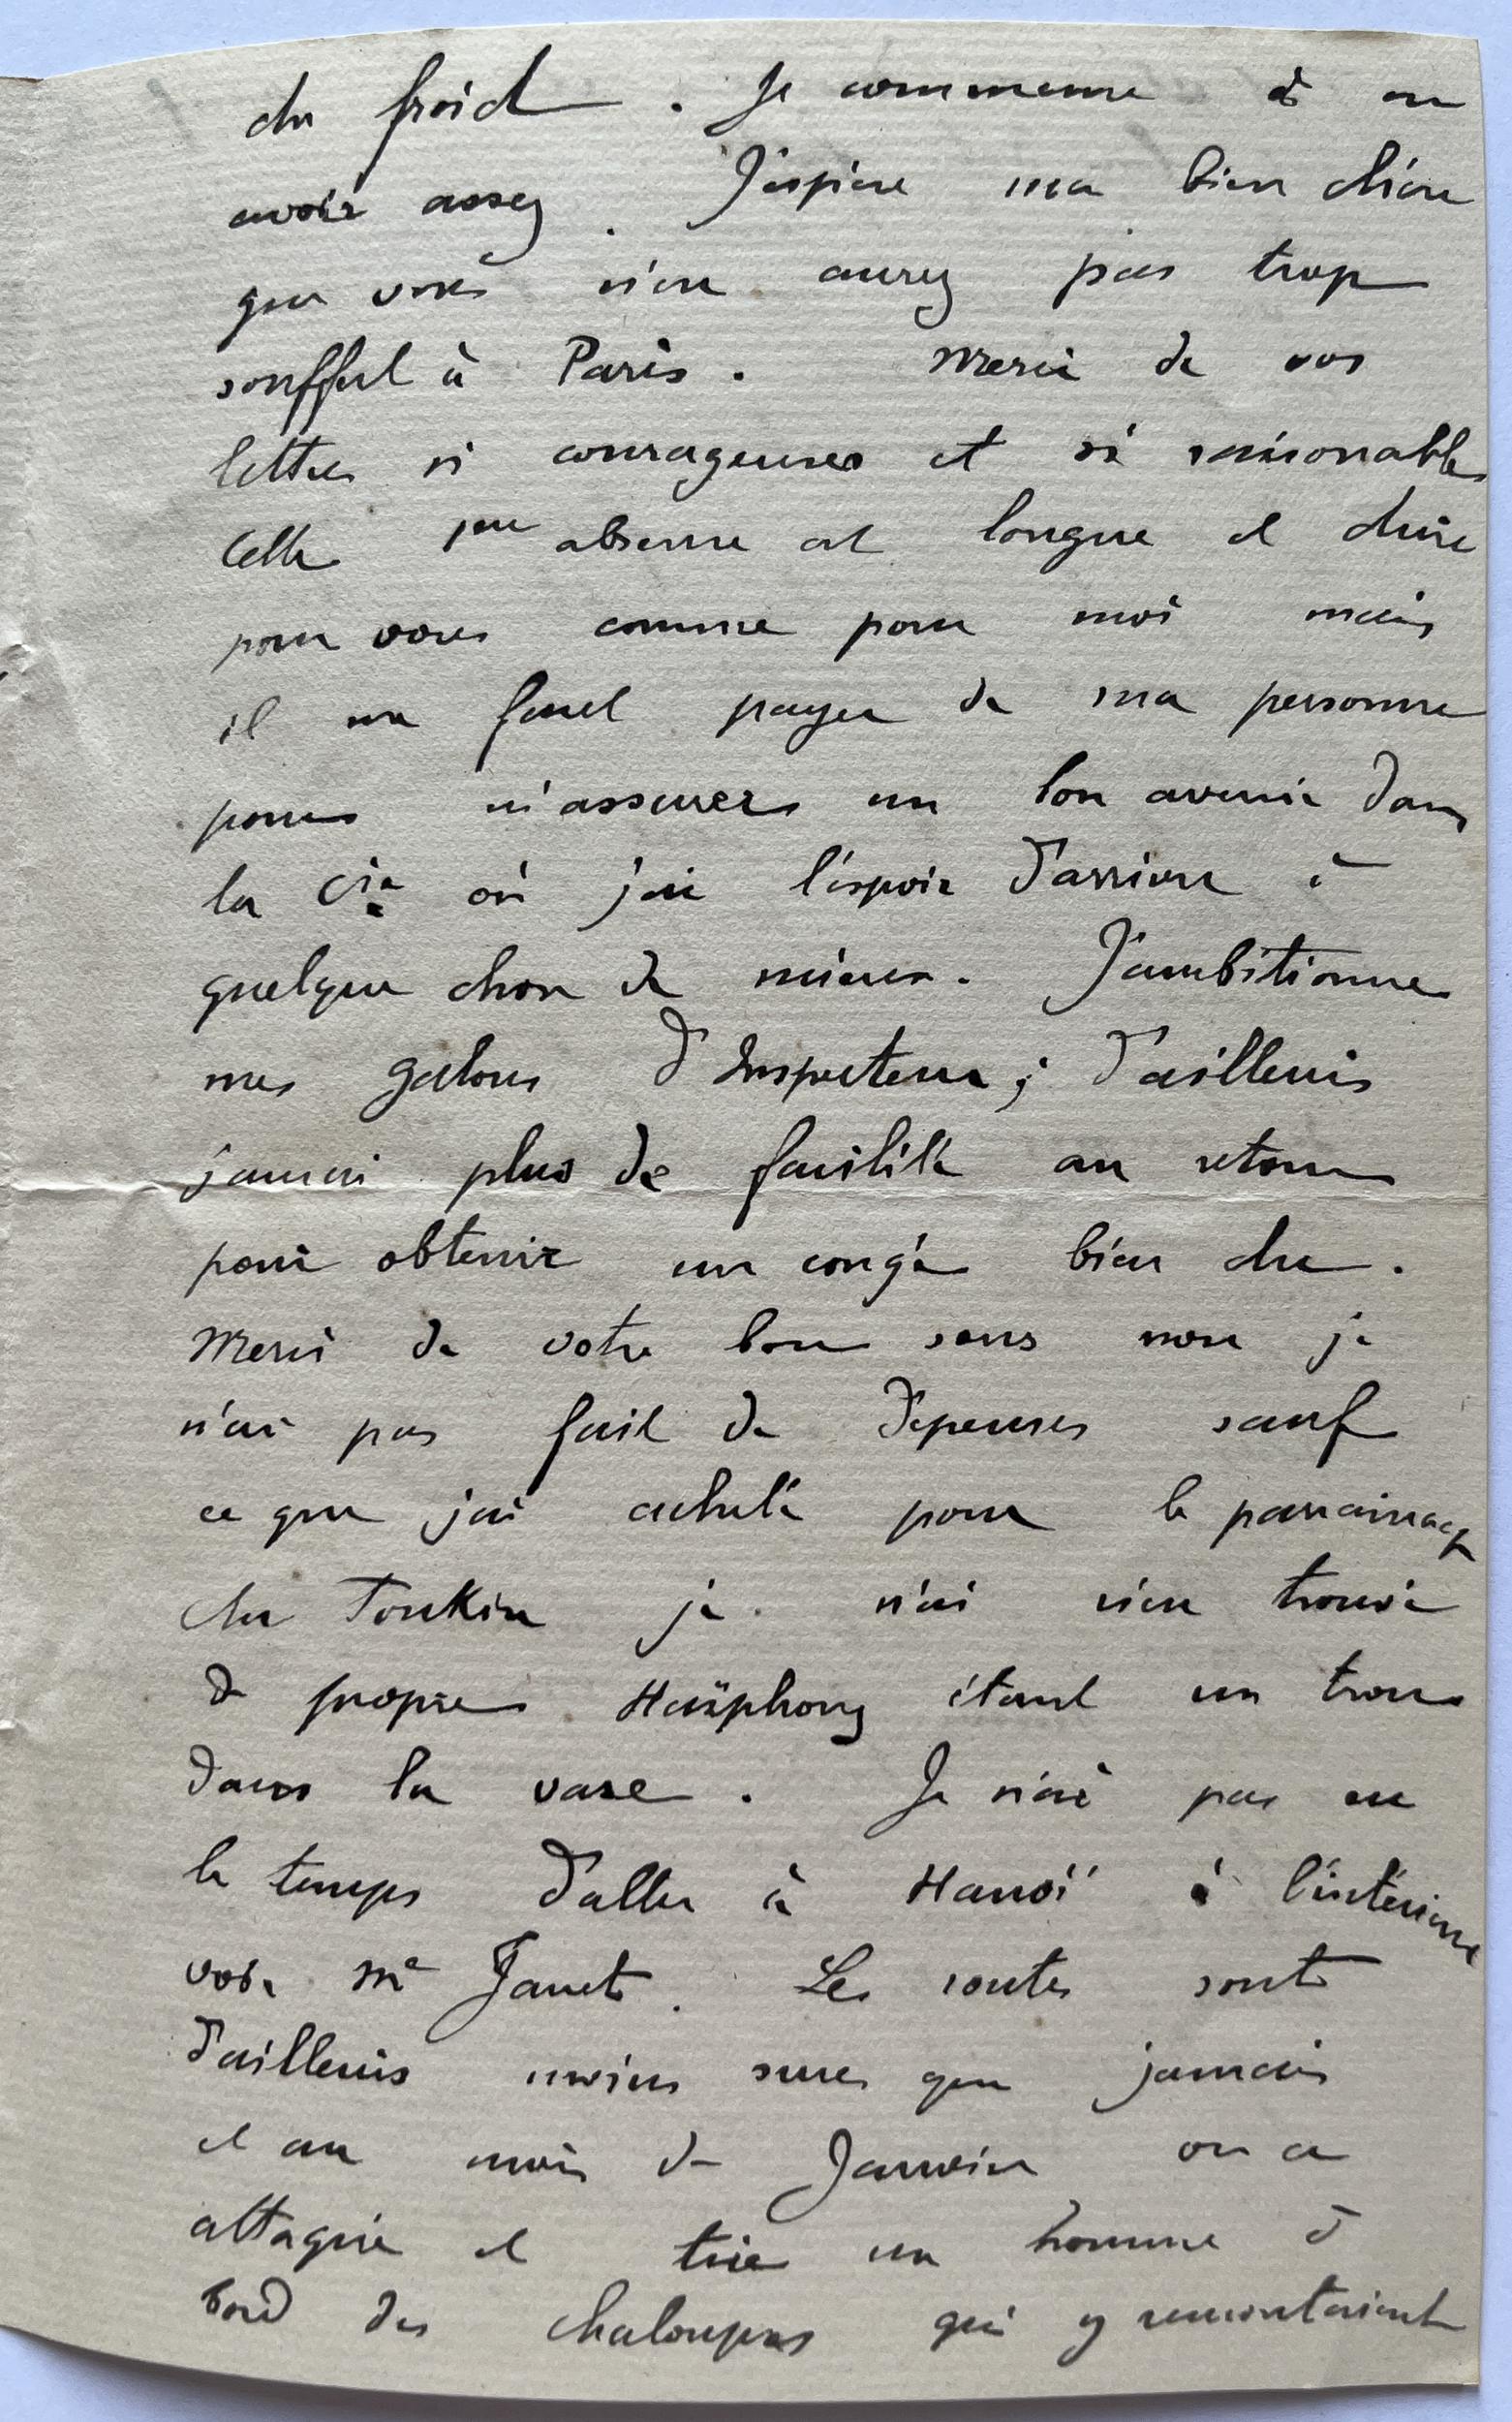 du froid. Je commence à en
avoir assez. J'espère ma bien chère
que vous n'en aurez pas trop
souffert à Paris. Merci de vos
lettres si courageuses et si raisonnables
Cette absence est longue et dure
pour vous comme pour moi mais
il me faut payer de ma personne
pour m'assurer un bon avenir dans
la Cie où j'ai l'espoir d'arriver à
quelque chose de mieux. J'ambitionne
mes galons d'Inspecteur; d'ailleurs
j'aurai plus de facilité au retour
pour obtenir un congé bien du.
Merci de votre bon sens non je
n'ai pas fait de dépenses sauf
ce que j'ai acheté pour le parrainage
du Tonkin je n'ai rien trouvé
de propre Haïphong étant un trou
dans la vase. Je n'ai pas eu
le temps d'aller à Hanoï à l'intérieur
voir Me Janet. Les routes sont
d'ailleurs moins sures que jamais
et au mois de Janvier on a
attaqué et tué un homme à
bord des chaloupes qui y remontaient